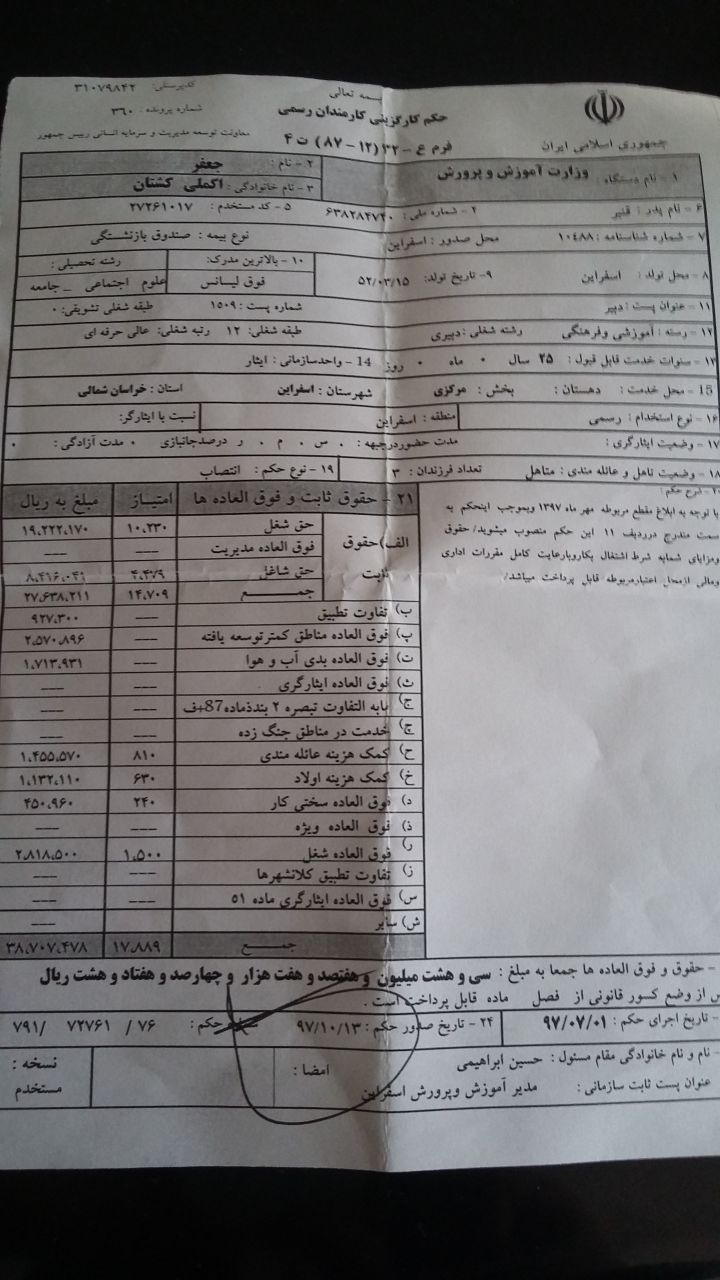 بسمه تعالی
کدپرسنلی: ۳۱۰۷۹۸۴۲
حکم کارگزینی کارمندان رسمی
شماره پرونده: ۳۶۰
جمهوری اسلامی ایران
فرم ع - ۳۲ (۱۲ - ۸۷) ت ۴
معاونت توسعه مدیریت و سرمایه انسانی رییس جمهور
۱ - نام دستگاه: وزارت آموزش و پرورش
۲ - نام: جعفر
۳ - نام خانوادگی: اکملی کشتان
۶ - نام پدر: قنبر
۴ - شماره ملی: ۶۳۸۲۸۴۷۴۰
۵ - کد مستخدم: ۲۷۲۶۱۰۱۷
۷ - شماره شناسنامه: ۱۰۴۸۸
محل صدور: اسفراین
نوع بیمه: صندوق بازنشستگی
۸ - محل تولد: اسفراین
۹- تاریخ تولد: ۵۲/۰۳/۱۵
۱۰ - بالاترین مدرک: فوق لیسانس
رشته تحصیلی: علوم اجتماعی _ جامعه
۱۱ - عنوان پست: دبیر
شماره پست: ۱۵۰۹
طبقه شغلی تشویقی: ۰
۱۲ - رسته: آموزشی وفرهنگی
رشته شغلی: دبیری
طبقه شغلی: ۱۲ رتبه شغلی: عالی حرفه ای
۱۳ - سنوات خدمت قابل قبول: ۲۵ سال ۰ ماه ۰ روز
14 - واحدسازمانی: ایثار
15 - محل خدمت: دهستان: بخش: مرکزی
شهرستان: اسفراین
استان: خراسان شمالی
۱۶ - نوع استخدام: رسمی
منطقه: اسفراین
نسبت با ایثارگر:
۱۷ - وضعیت ایثارگری:
مدت حضوردرجبهه: . س . م . و درصدجانبازی ۰ مدت آزادگی: ۰
۱۸ - وضعیت تاهل و عائله مندی: متاهل
تعداد فرزندان: ۳
۱۹ - نوع حکم: انتصاب
شرح حکم:
با توجه به ابلاغ مقطع مربوطه مهر ماه ۱۳۹۷ وبموجب اینحکم به
سمت مندرج درردیف ۱۱ این حکم منصوب میشوید/حقوق
ومزایای شمابه شرط اشتغال بکاروبارعایت کامل مقررات اداری
ومالی ازمحل اعتبارمربوطه قابل پرداخت میباشد/
۲۱ - حقوق ثابت و فوق العاده ها امتیاز مبلغ به ریال
الف)حقوق ثابت
حق شغل ۱۰،۲۳۰ ۱۹،۲۲۲،۱۷۰
فوق العاده مدیریت --- ---
حق شاغل ۴،۴۷۹ ۸،۴۱۶،۰۴۱
جمع ۱۴،۷۰۹ ۲۷،۶۳۸،۲۱۱
ب) تفاوت تطبیق --- ۹۲۷،۳۰۰
پ) فوق العاده مناطق کمترتوسعه یافته --- ۲،۵۷۰،۸۹۶
ت) فوق العاده بدی آب و هوا --- ۱،۷۱۳،۹۳۱
ث) فوق العاده ایثارگری --- ---
ج) مابه التفاوت تبصره ۲ بندذماده87+ف --- ---
چ) خدمت در مناطق جنگ زده --- ---
ح) کمک هزینه عائله مندی ۸۱۰ ۱،۴۵۵،۵۷۰
خ) کمک هزینه اولاد ۶۳۰ ۱،۱۳۲،۱۱۰
د) فوق العاده سختی کار ۲۴۰ ۴۵۰،۹۶۰
ذ) فوق العاده ویژه --- ---
ر) فوق العاده شغل ۱،۵۰۰ ۲،۸۱۸،۵۰۰
ز) تفاوت تطبیق کلانشهرها --- ---
س) فوق العاده ایثارگری ماده ۵۱ --- ---
ش) سایر ---
جمع ۱۷،۸۸۹ ۳۸،۷۰۷،۴۷۸
- حقوق و فوق العاده ها جمعا به مبلغ: سی و هشت میلیون و هفتصد و هفت هزار و چهارصد و هفتاد و هشت ریال
پس از وضع کسور قانونی از فصل ماده قابل پرداخت است.
- تاریخ اجرای حکم: ۹۷/۰۷/۰۱
۲۴ - تاریخ صدور حکم: ۹۷/۱۰/۱۳
حکم: ۷۶/ ۷۲۷۶۱ /۷۹۱
- نام و نام خانوادگی مقام مسئول: حسین ابراهیمی
عنوان پست ثابت سازمانی: مدیر آموزش وپرورش اسفراین
امضا:
نسخه:
مستخدم